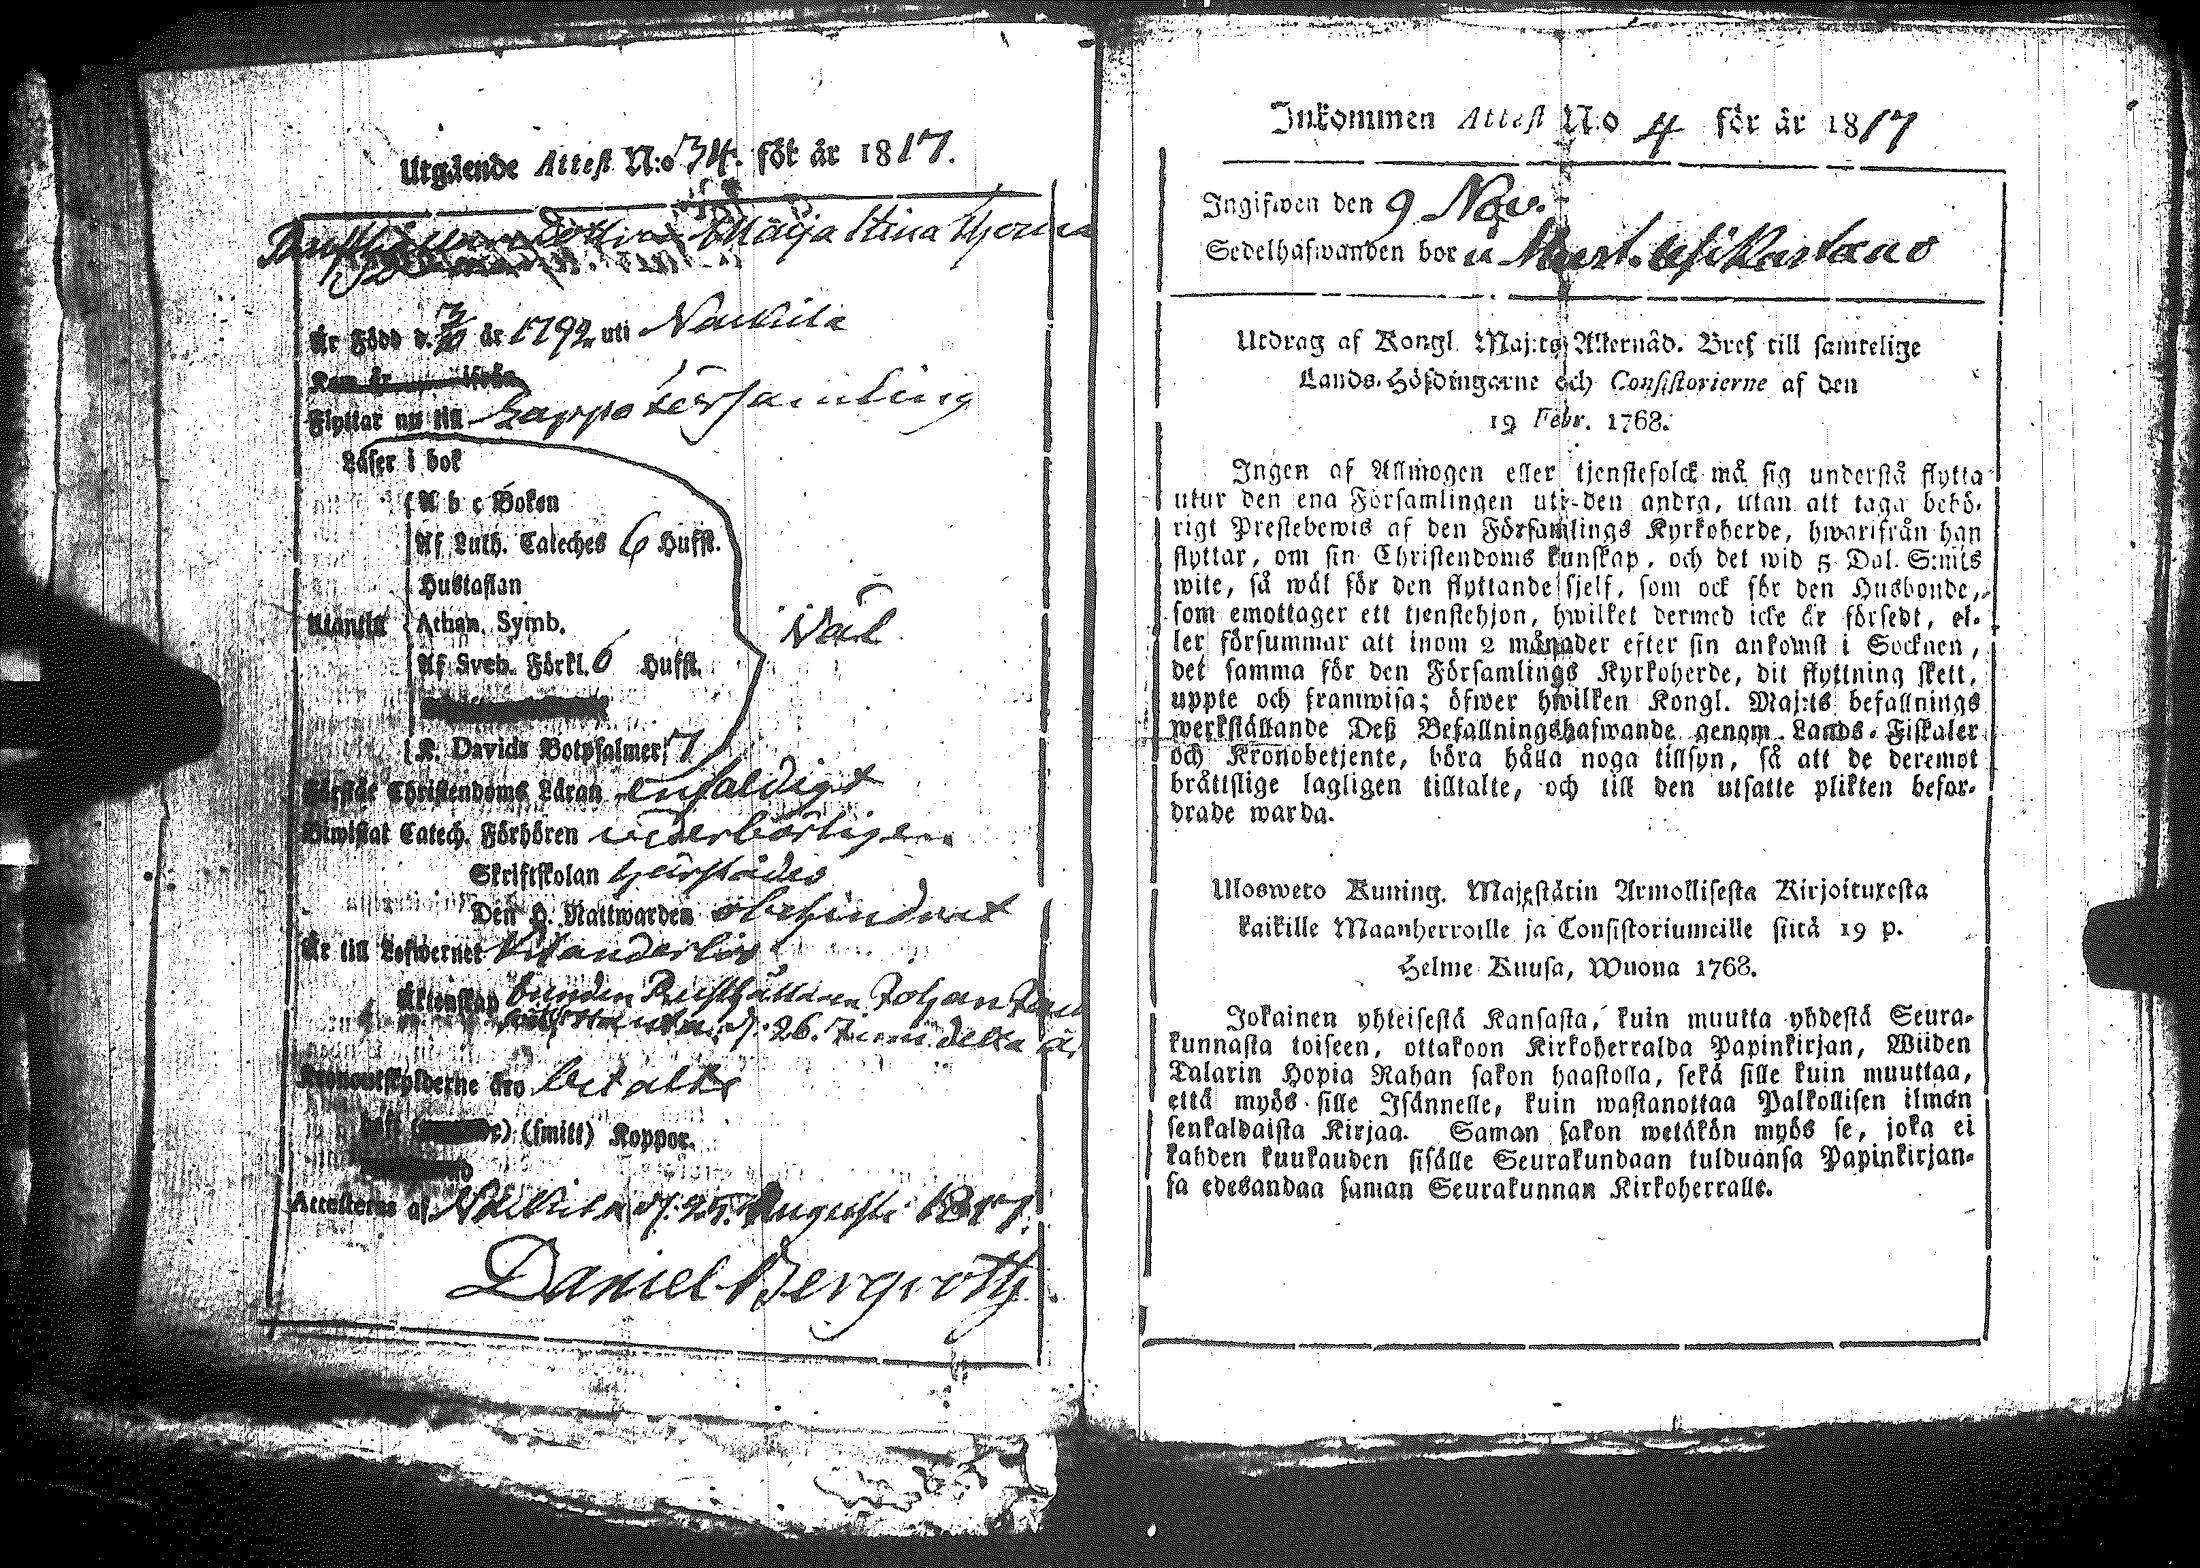 Utgående Attest N:o 34. för år 1817.
Maija Stina
Är Född d. år 1792 uti Nackila
Flyttar nu till Lappo församling
Läser i bok
A b c Boken
Af Luth. Cateches 6 Hufst.
Hustaflan
Utantill Athan. Symb. Wäl
Af Sveb. Förkl. 6 Hufst.
K. Davids Botpsalmer 7
Förstår Christendoms Läran enfaldigt
Biwistat Catech. Förhören wederbörligen
Skriftskolan härstädes
Den H. Nattwarden obehindrat
Är till Lefwernet oklanderlig
Äktenskap bunden Rusthållaren Johan
d. 26. Juni detta år
Kronoutskylderne äro betalte
haft (smitt) Koppor.
Attesteras af Nackila d. 25. Augusti 1817.
Daniel Bergroth
Inkommen Attest N:o 4 för år 1817
Ingifwen den 9 Nov.
Sedelhafwanden bor i
Utdrag af Kongl. Maj:ts Allernåd. Bref till samtelige
Lands-Höfdingarne och Consistorierne af den
19 Febr. 1768.
Ingen af Allmogen eller tjenstefolck må sig understå flytta
utur den ena Församlingen uti den andra, utan att taga behö-
rigt Prestebewis af den Församlings Kyrkoherde, hwarifrån han
flyttar, om sin Christendoms kunskap, och det wid 5 Dal. S:mts
wite, så wäl för den flyttande sjelf, som ock för den Husbonde,
som emottager ett tjenstehjon, hwilket dermed icke är försedt, el-
ler försummar att inom 2 månader efter sin ankomst i Socknen,
det samma för den Församlings Kyrkoherde, dit flyttning skett,
uppte och framwisa; öfwer hwilken Kongl. Maj:ts befallnings
werkställande Deß Befallningshafwande genom Lands-Fiskaler
och Kronobetjente, böra hålla noga tillsyn, så att de deremot
bråttslige lagligen tilltalte, och till den utsatte plikten befor-
drade warda.
Ulosweto Kuning. Majestätin Armollisesta Kirjoituxesta
kaikille Maanherroille ja Consistoriumeille siitä 19 p.
Helme Kuusa, Wuona 1768.
Jokainen yhteisestä Kansasta, kuin muutta yhdestä Seura-
kunnasta toiseen, ottakoon Kirkoherralda Papinkirjan, Wiiden
Talarin Hopia Rahan sakon haastolla, sekä sille kuin muuttaa,
että myös sille Isännelle, kuin wastanottaa Palkollisen ilman
senkaldaista Kirjaa. Saman sakon wetäkön myös se, joka ei
kahden kuukauden sisälle Seurakundaan tulduansa Papinkirjan-
sa edesandaa saman Seurakunnan Kirkoherralle.